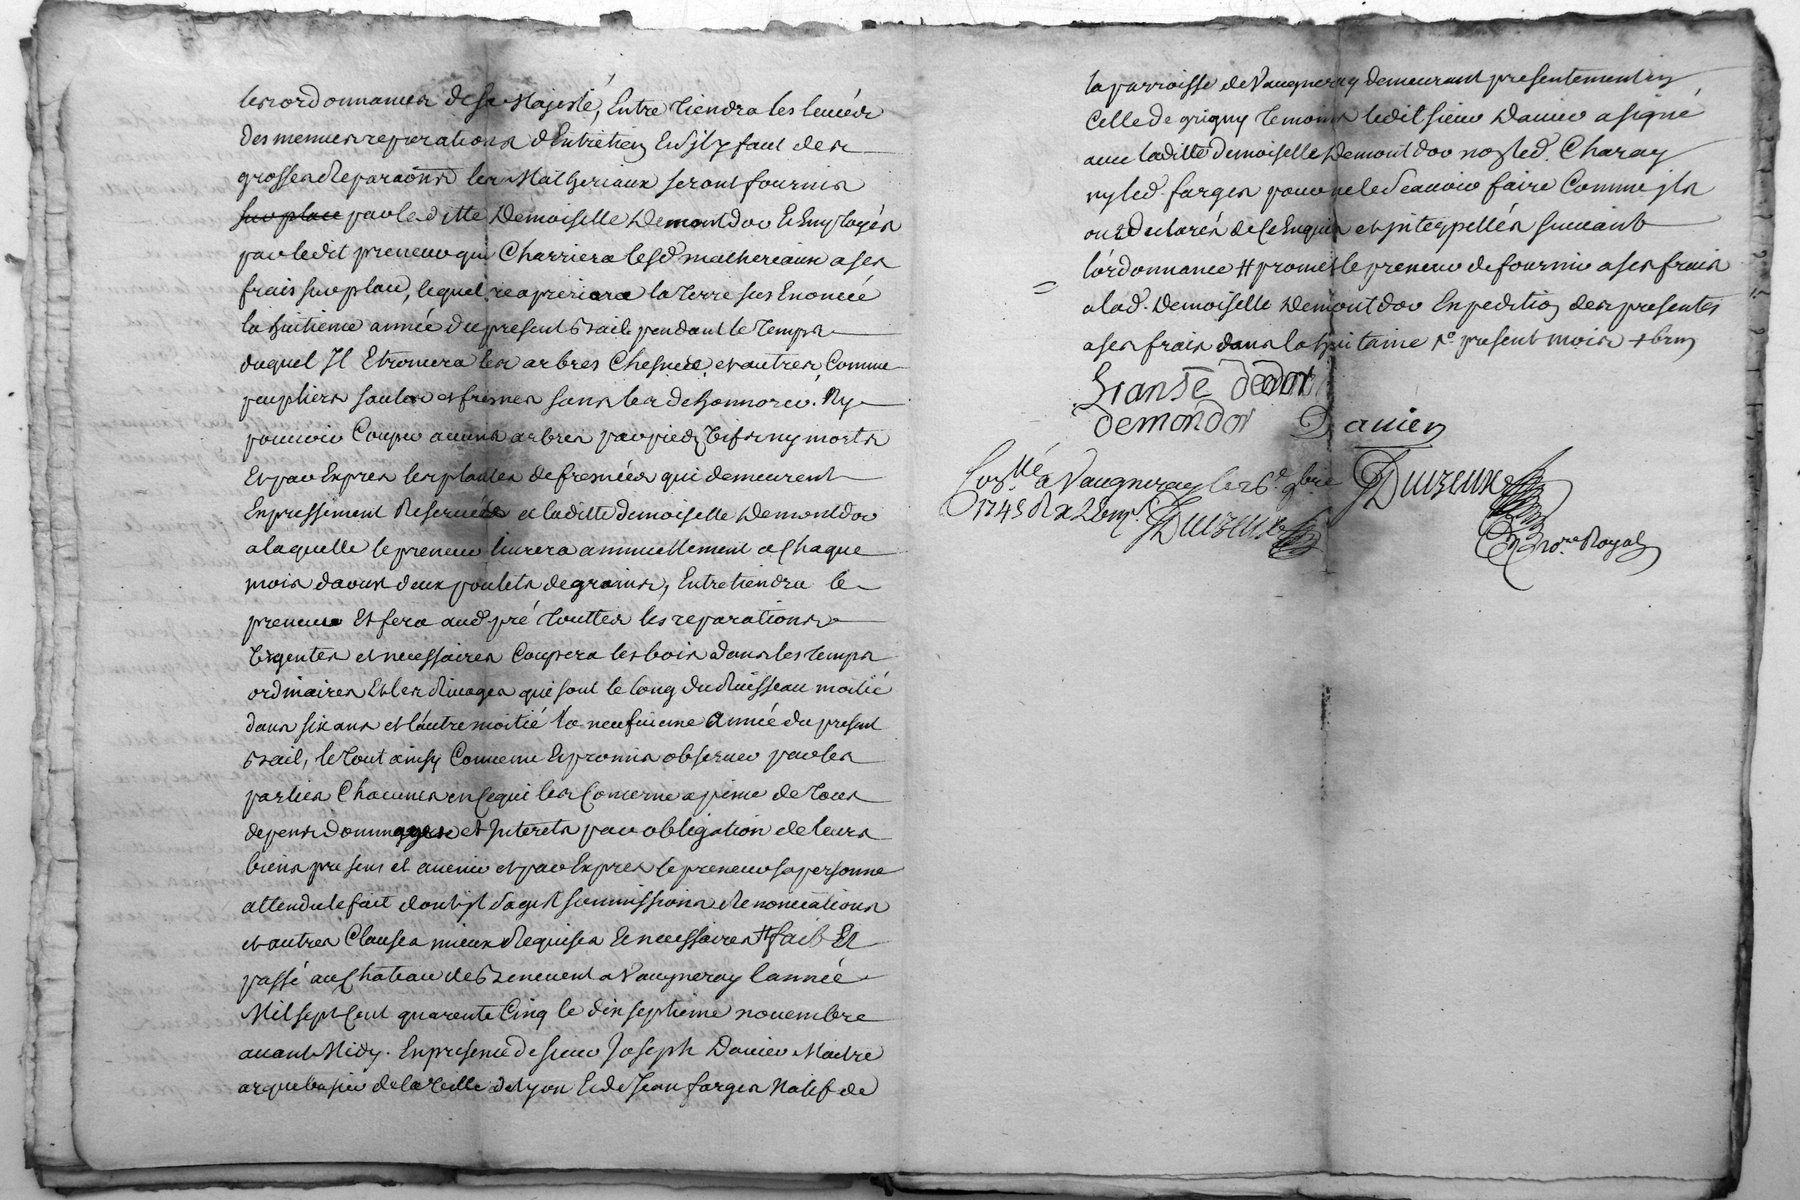 les ordonnances de Sa Majesté, Entretiendra les
des menues reparations d'Entretien Et s'il y faut des
grosses Reparaõns les Matheriaux seront fournis
sur place par laditte Demoiselle Demontdor Et Employés
par ledit preneur qui Charriera lesd. matheriaux a ses
frais sur place, lequel la terre sus Enoncée
la huitieme année du present Bail pendant le temps
duquel Il Etronnera les arbres Chesnes, et autres Comme
peupliers saules et fresnes sans les deshonnorer, Ny
pouvoir Couper aucuns arbres par pied vifs ny morts
Et par Exprès les plantes de fresnées qui demeurent
Expressement Reservées et laditte demoiselle Demontdor
a laquelle le preneur livrera annuellement a Chaque
mois daoust deux poulets de grains, Entretiendra le
preneur Et fera aud. pré touttes les reparations
Urgentes et necessaires Coupera les bois dans les temps
ordinaires Et les Rivages qui sont le long du Ruisseau moitié
dans six ans et l'autre moitié la neufvieme année du present
Bail, le tout ainsy Convenu Et promis observer par les
parties Chacunes en Ce qui les Concerne a peine de tous
depens dommages et Interets par obligation de leurs
biens presens et avenir et par Exprès le preneur sa personne
attendu le fait dont il s'agist soumissions Renonciations
et autres Clauses mieux Requises Et necessaires # fait Et
passé au Chateau de Benevent a Vaugneray l'année
Mil sept Cent quarente Cinq le dix septieme novembre
avant Midy. En presence de sieur Joseph Davier Maitre
arquebusier de la Ville de Lyon Et de Jean farges Natif de
la parroisse de Vaugneray demeurant presentement en
Celle de grigny temoins ledit sieur Davier a signé
avec laditte demoiselle Demontdor non led. Charay
ny led. farges pour ne le sçavoir faire Comme ils
ont declarés de Ce Enquis et interpellés suivant
l'ordonnance # promet le preneur de fournir a ses frais
a lad. Demoiselle Demontdor Expedition des presentes
a ses frais dans la huitaine present mois
demondor Davier
a Vaugneray le 26e 9bre Duizeux
1745 R Duizeux
nore Royal